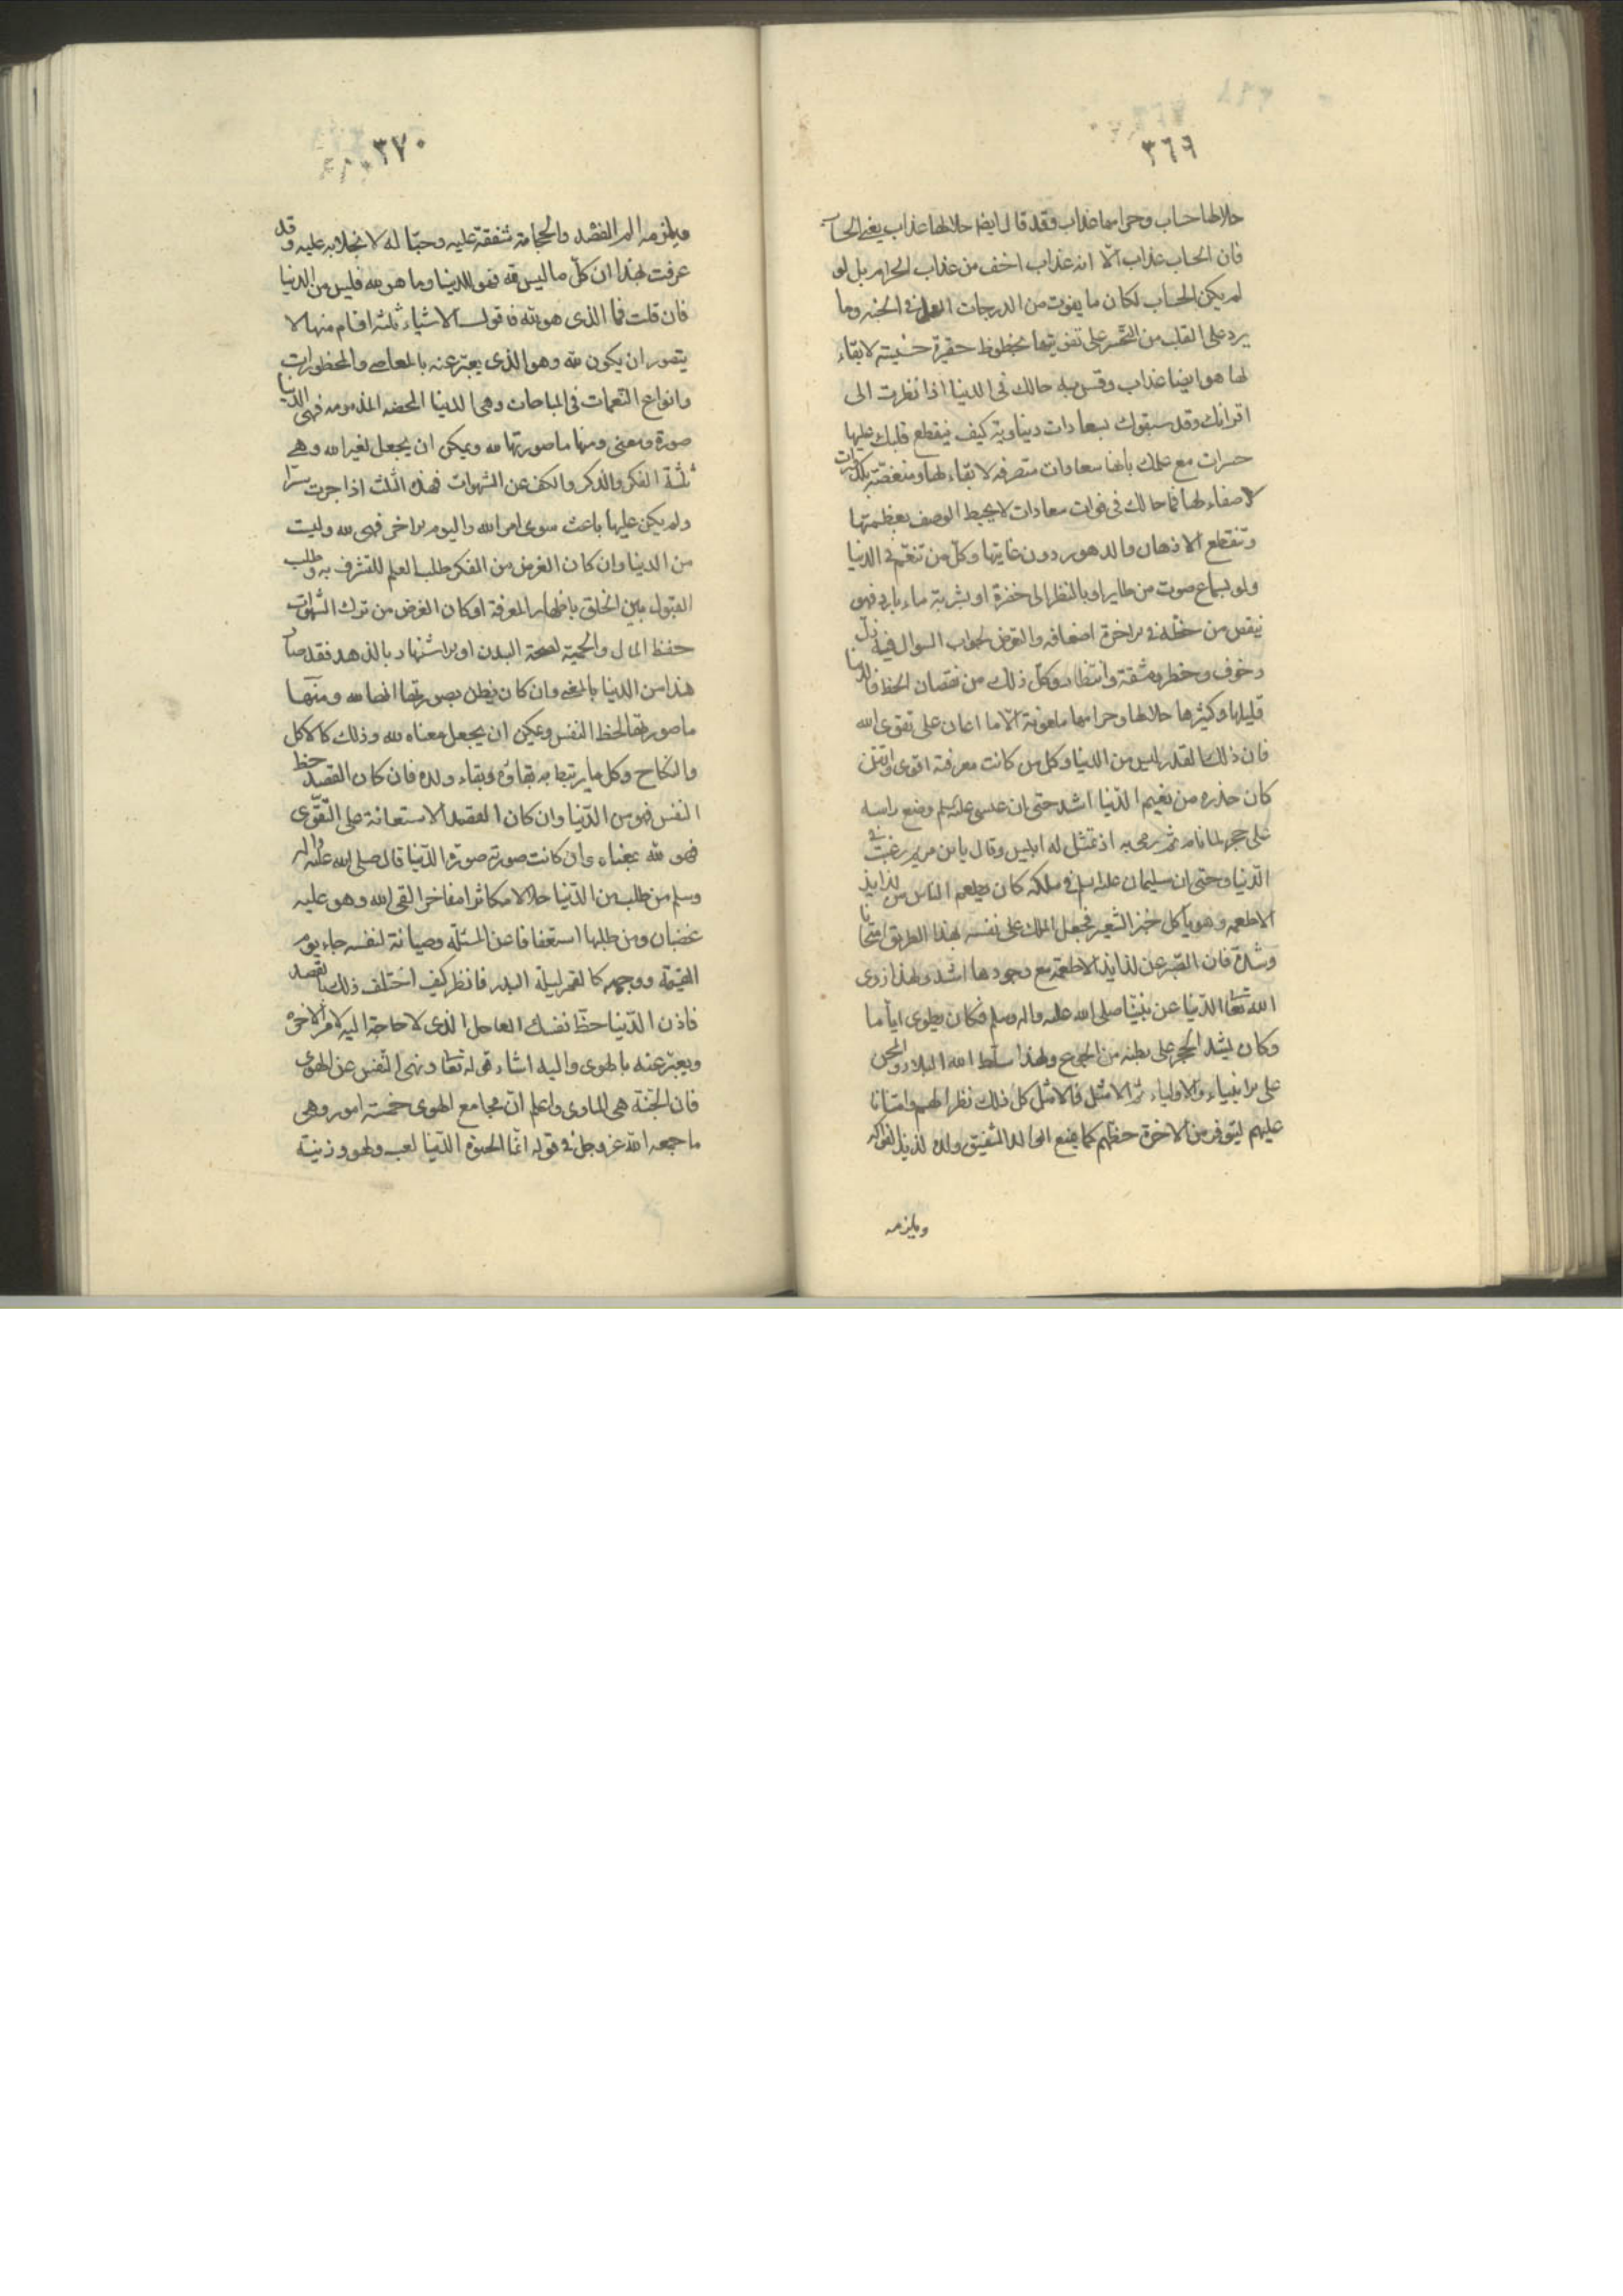 ٣٦٩
حلالها حساب وحرامها عذاب وقد قال ايضا حلالها عذاب يعني الحساب
فان الحساب عذاب الّا انه عذاب اخف من عذاب الحرام بل لو
لم يكن الحساب لكان ما يفوت من الدرجات العلى في الجنه وما
يرد على القلب من التحسر على تفويتها بحظوظ حقيرة خسيسة لا بقاء
لها هو ايضا عذاب وقس به حالك في الدنيا اذا نظرت الى
اقرانك وقد سبقوك بسعادات دنياوية كيف ينقطع قلبك عليها
حسرات مع علمك بانها سعادات متصرفه لا بقاء لها ومنغصة بكدورات
لا صفاء لها فما حالك في فوات سعادات لا يحيط الوصف بعظمتها
وتنقطع الاذهان والدهور دون غايتها وكلّ من تنعّم في الدنيا
ولو بسماع صوت من طاير او بالنظر الى خضرة او بشربة ماء بارد فهو
ينقص من حظه في الاخرة اضعافه والتعرض لجواب السوال فيه ذل
وخوف وخطر ومشقة وانتظار وكل ذلك من نقصان الحظ فالدنيا
قليلها وكثيرها حلالها وحرامها ملعونة الّا ما اعان على تقوى الله
فان ذلك القدر ليس من الدنيا وكل من كانت معرفته اقوى واتقن
كان حذره من نعيم الدّنيا اشد حتى ان عيسى عليه السلم وضع راسه
على حجر لما نام ثم رمى به اذ تمثل له ابليس وقال يا ابن مريم رغبت في
الدّنيا وحتى ان سليمان عليه السلم في ملكه كان يطعم الناس من لذايذ
الاطعمه وهو ياكل خبز الشعير فجعل الملك على نفسه بهذا الطريق امتحانا
وشدة فان الصّبر عن لذايذ الاطعمة مع وجودها اشد ولهذا زوى
الله تعا الدّنيا عن نبيّنا صلى الله عليه واله وسلم فكان يطوى اياما
وكان يشد الحجر على بطنه من الجوع ولهذا سلّط الله البلاد والمحن
على الانبياء والاولياء ثم الامثل فالامثل كل ذلك نظرا لهم وامتنانا
عليهم ليتوفر من الاخرة حظهم كما يمنع الوالد الشفيق ولده لذيذ الفواكه
ويلزمه
٣٧٠
ويلزمه الم الفصد والحجامة شفقة عليه وحبّا له لا بخلا به عليه وقد
عرفت بهذا ان كلّ ما ليس لله فهو للدنيا وما هو لله فليس من الدنيا
فان قلت فما الذى هو لله فاقول الاشياء ثلثه اقسام منها لا
يتصور ان يكون لله وهو الذى يعبّر عنه بالمعاصى والمحظورات
وانواع التنعمات في المباحات وهى الدنيا المحضه المذمومه فهى الدنيا
صورة ومعنى ومنها ما صورتها لله ويمكن ان يجعل لغير الله وهى
ثلثة الفكر والذكر والكف عن الشهوات فهذه الثلث اذا جرت سرّا
ولم يكن عليها باعث سوى امر الله واليوم الاخر فهى لله وليست
من الدنيا وان كان الغرض من الفكر طلب العلم للتشرف به وطلب
القبول بين الخلق باظهار المعرفة او كان الغرض من ترك الشهوات
حفظ المال والحمية لصحة البدن او الاشتهار بالزهد فقد صار
هذا من الدنيا بالمعنى وان كان يظن بصورتها انها لله ومنها
ما صورتها لحظ النفس ويمكن ان يجعل معناه لله وذلك كالاكل
والنكاح وكل ما يرتبط به بقاؤه وبقاء ولده فان كان القصد حظ
النفس فهو من الدّنيا وان كان القصد الاستعانة على التّقوى
فهو لله بمعناه وان كانت صورته صورة الدّنيا قال صلى الله عليه واله
وسلم من طلب من الدّنيا حلالا مكاثرا مفاخرا لقى الله وهو عليه
غضبان ومن طلبها استعفافا عن المسئلة وصيانة لنفسه جاء يوم
القيمة ووجهه كالقمر ليلة البدر فانظر كيف اختلف ذلك بالقصد
فاذن الدّنيا حظّ نفسك العاجل الذى لا حاجة اليه لامر الاخرة
ويعبّر عنه بالهوى واليه اشار قوله تعا ونهى النّفس عن الهوى
فان الجنّة هى الماوى واعلم انّ مجامع الهوى خمسة امور وهى
ما جمعه الله عز وجل في قوله انّما الحيوة الدّنيا لعب ولهو وزينة